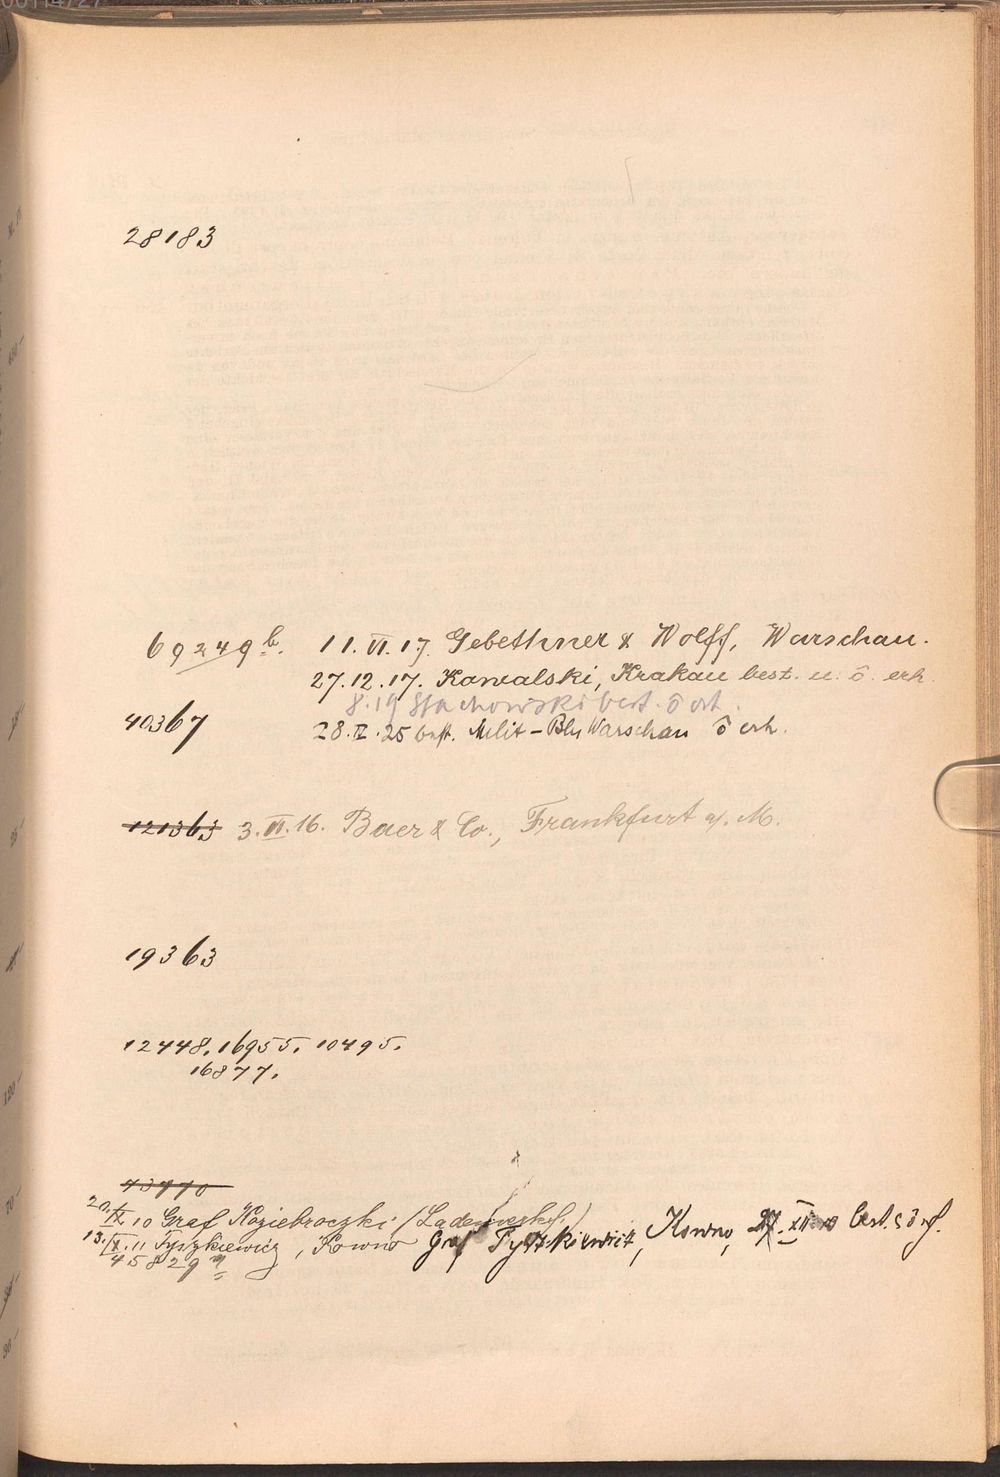 28183
69249 b. 11.VI.17. Gebethner & Wolff, Warschau.
27.12.17. Kowalski, Krakau best. u. ō. erh.
8.19 Stachowski best. ō erh.
40367 28.IV.25 best. Milit-Bln Warschau ō erh.
121363 3.VI.16. Baer & Co., Frankfurt a/. M.
19363
12448. 16955. 10495.
16877.
43440
20./IX.10 Graf Koziebroczki (Ladenverkf.)
13./X.11 Tyszkiewicz, Kowno Graf Tyszkiewicz, Kowno, best.
45829